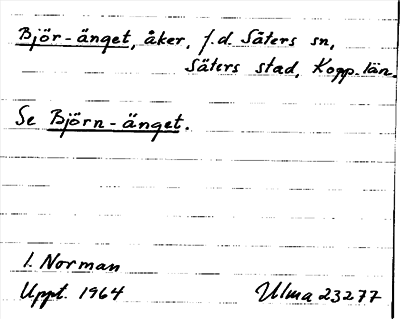 Björ-änget, åker, f.d. Säters sn,
Säters stad, Kopp. län.
Se Björn-änget.
I. Norman
Uppt. 1964 Ulma 23277